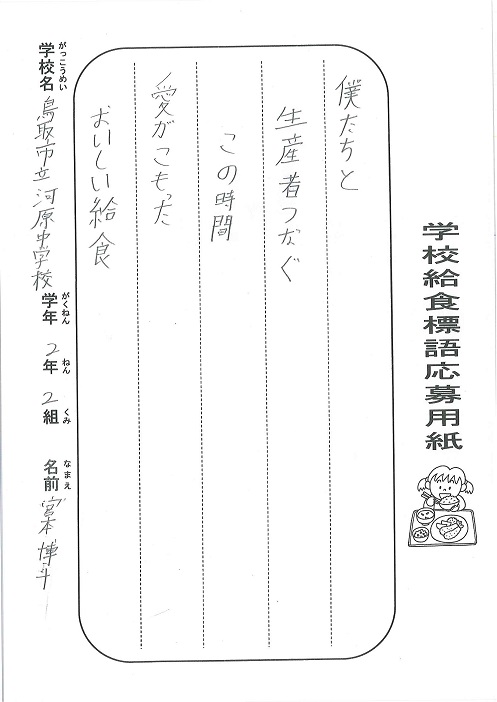 学校給食標語応募用紙
僕たちと
生産者つなぐ
この時間
愛がこもった
おいしい給食
がっこうめい
学校名 鳥取市立河原中学校
がくねん
学年
ねん
2年
くみ
2組
なまえ
名前 宮本 博斗